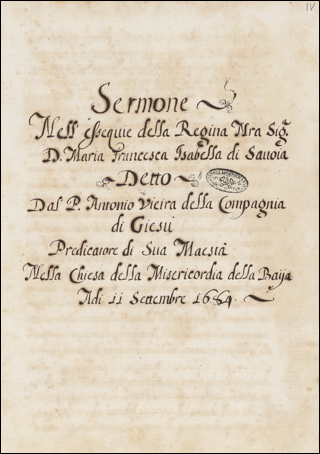 IV
Sermone
Nell' essequie della Regina Nra Sig.ra
D. Maria Francesca Isabella di Sauoia
Detto
Dal P. Antonio Vieira della Compagnia
di Giesù
Predicatore di Sua Maestà
Nella Chiesa della Misericordia della Baija
Adi 11 Settembre 1684.